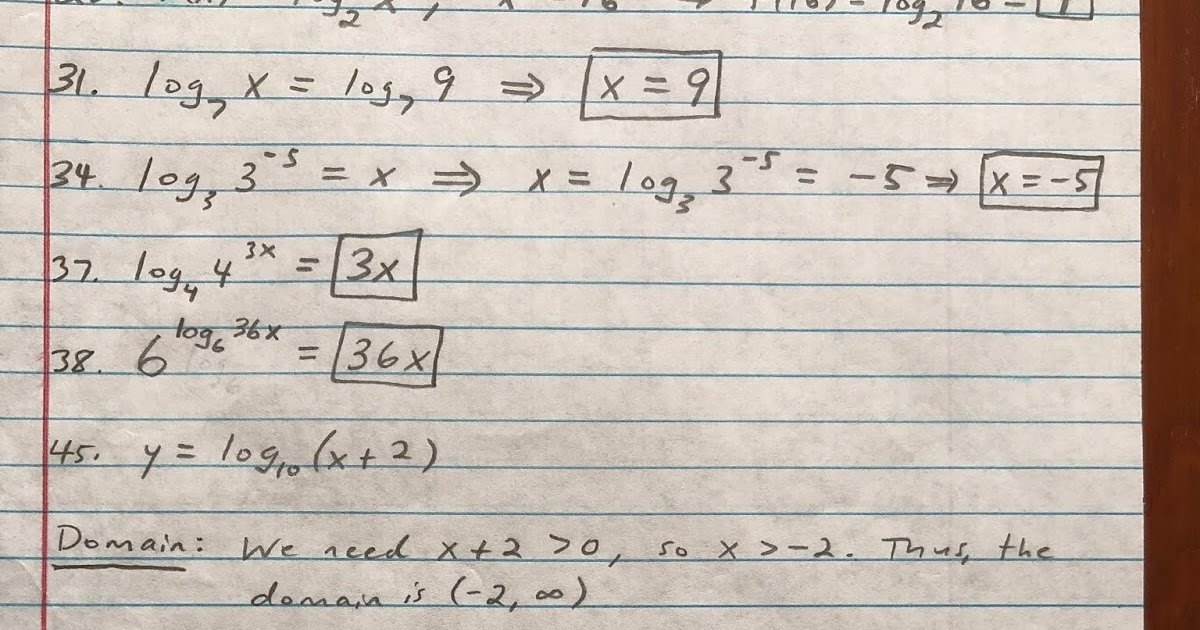 log₂ x, x = 16 ⇒ f(16) = log₂ 16 =
31. log₇ x = log₇ 9 ⇒ x = 9
34. log₃ 3⁻⁵ = x ⇒ x = log₃ 3⁻⁵ = -5 ⇒ x = -5
37. log₄ 4³ˣ = 3x
38. 6^(log₆ 36x) = 36x
45. y = log₁₀ (x + 2)
Domain: We need x + 2 > 0, so x > -2. Thus, the
domain is (-2, ∞)